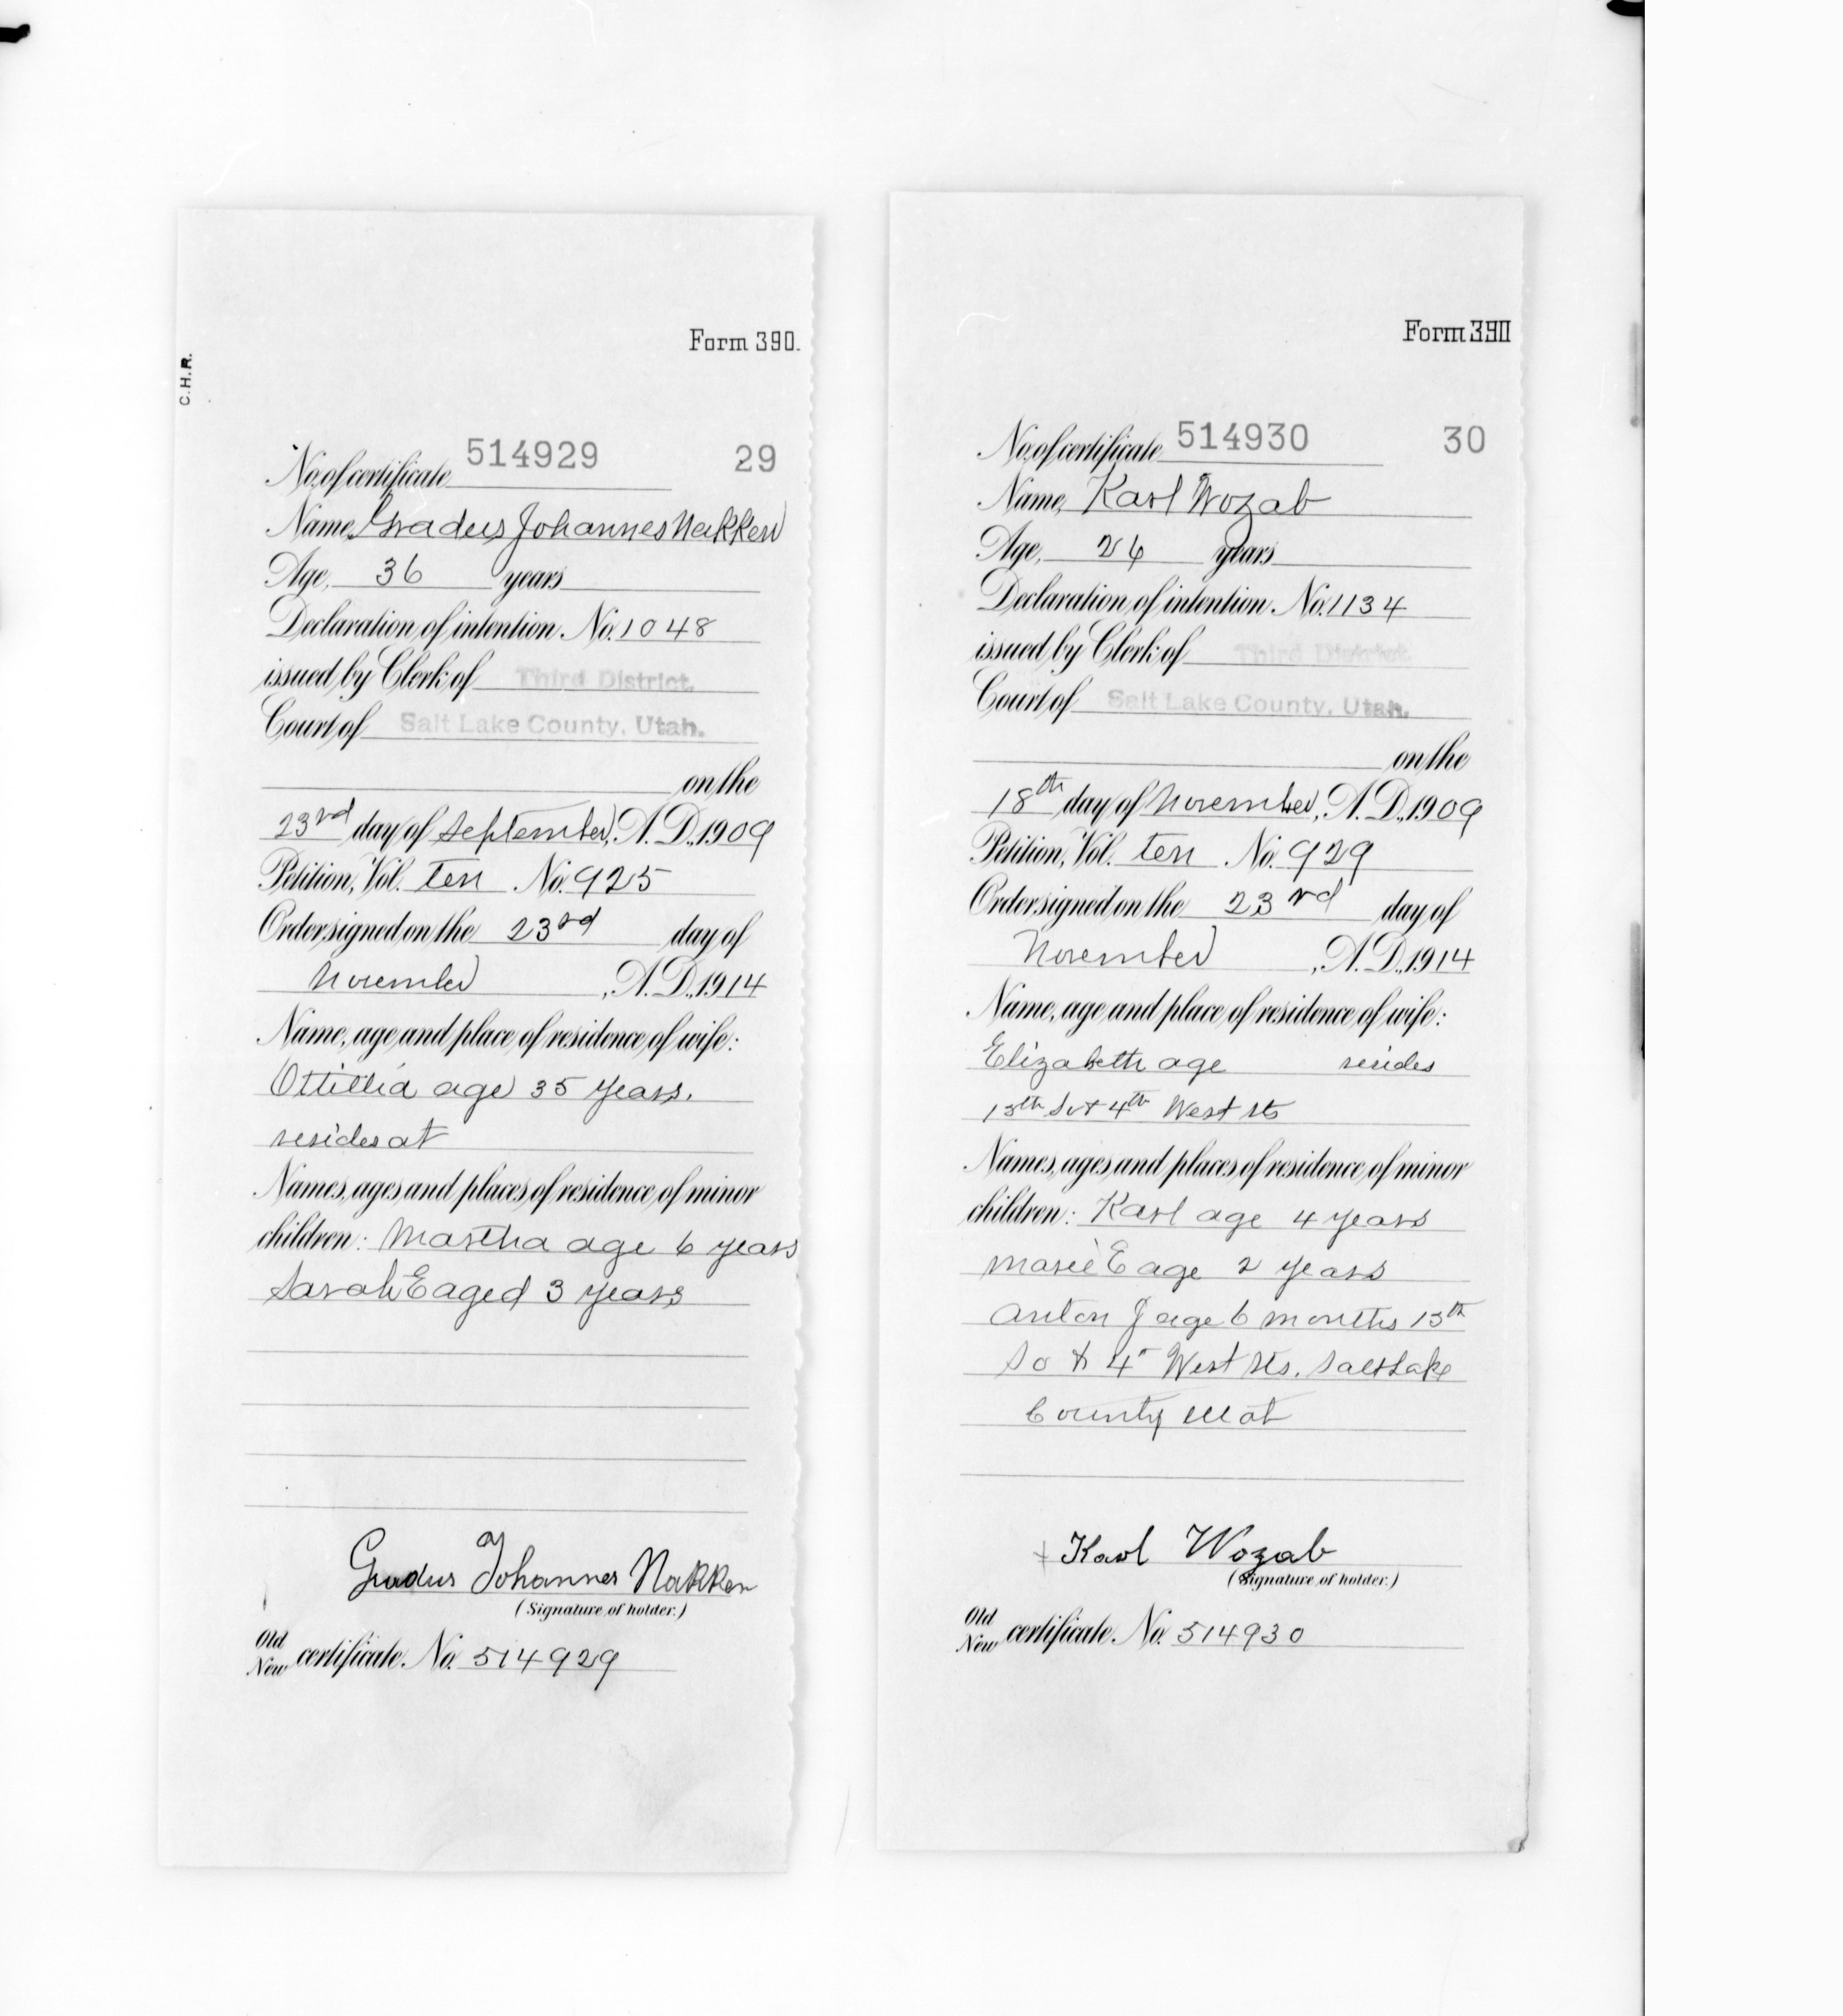 C.H.R.
Form 390.
No. of certificate 514929 29
Name, Gradus Johannes Nakken
Age, 36 years
Declaration of intention. No. 1048
issued by Clerk of Third District.
Court of Salt Lake County, Utah.
on the
23rd day of September, A. D., 1909
Petition, Vol. Ten No. 925
Order signed on the 23rd day of
November , A. D., 1914
Name, age and place of residence of wife:
Ottillia age 35 years.
resides at
Names, ages and places of residence of minor
children: Martha age 6 years
Sarah E aged 3 years
Gradus Johannes Nakken
(Signature of holder.)
Old
New certificate. No. 514929
Form 390
No. of certificate 514930 30
Name, Karl Wozab
Age, 26 years
Declaration of intention. No. 1134
issued by Clerk of Third District.
Court of Salt Lake County, Utah.
on the
18th day of November, A. D., 1909
Petition, Vol. Ten No. 929
Order signed on the 23rd day of
November , A. D., 1914
Name, age and place of residence of wife:
Elizabeth age resides
13th So & 4th West Sts
Names, ages and places of residence of minor
children: Karl age 4 years
Marie E age 2 years
Anton J age 6 months 13th
So & 4" West Sts. Salt Lake
County
Karl Wozab
(Signature of holder.)
Old
New certificate. No. 514930